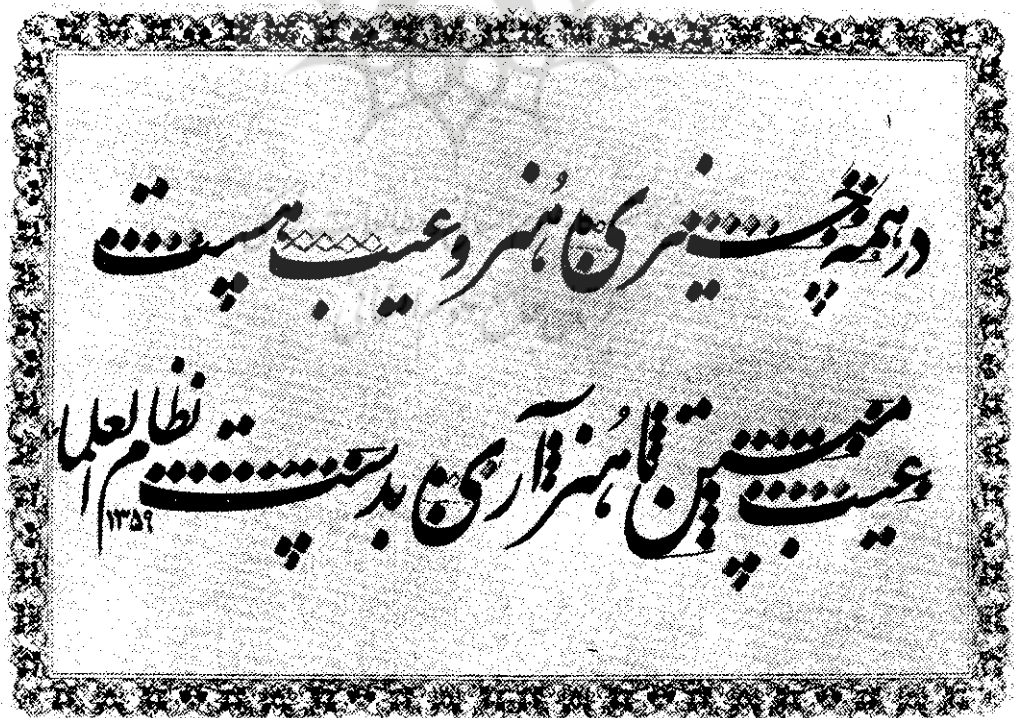 در همه چیزی هنر و عیب هست
عیب مبین تا هنر آری بدست
نظام العلما
۱۳۵۹